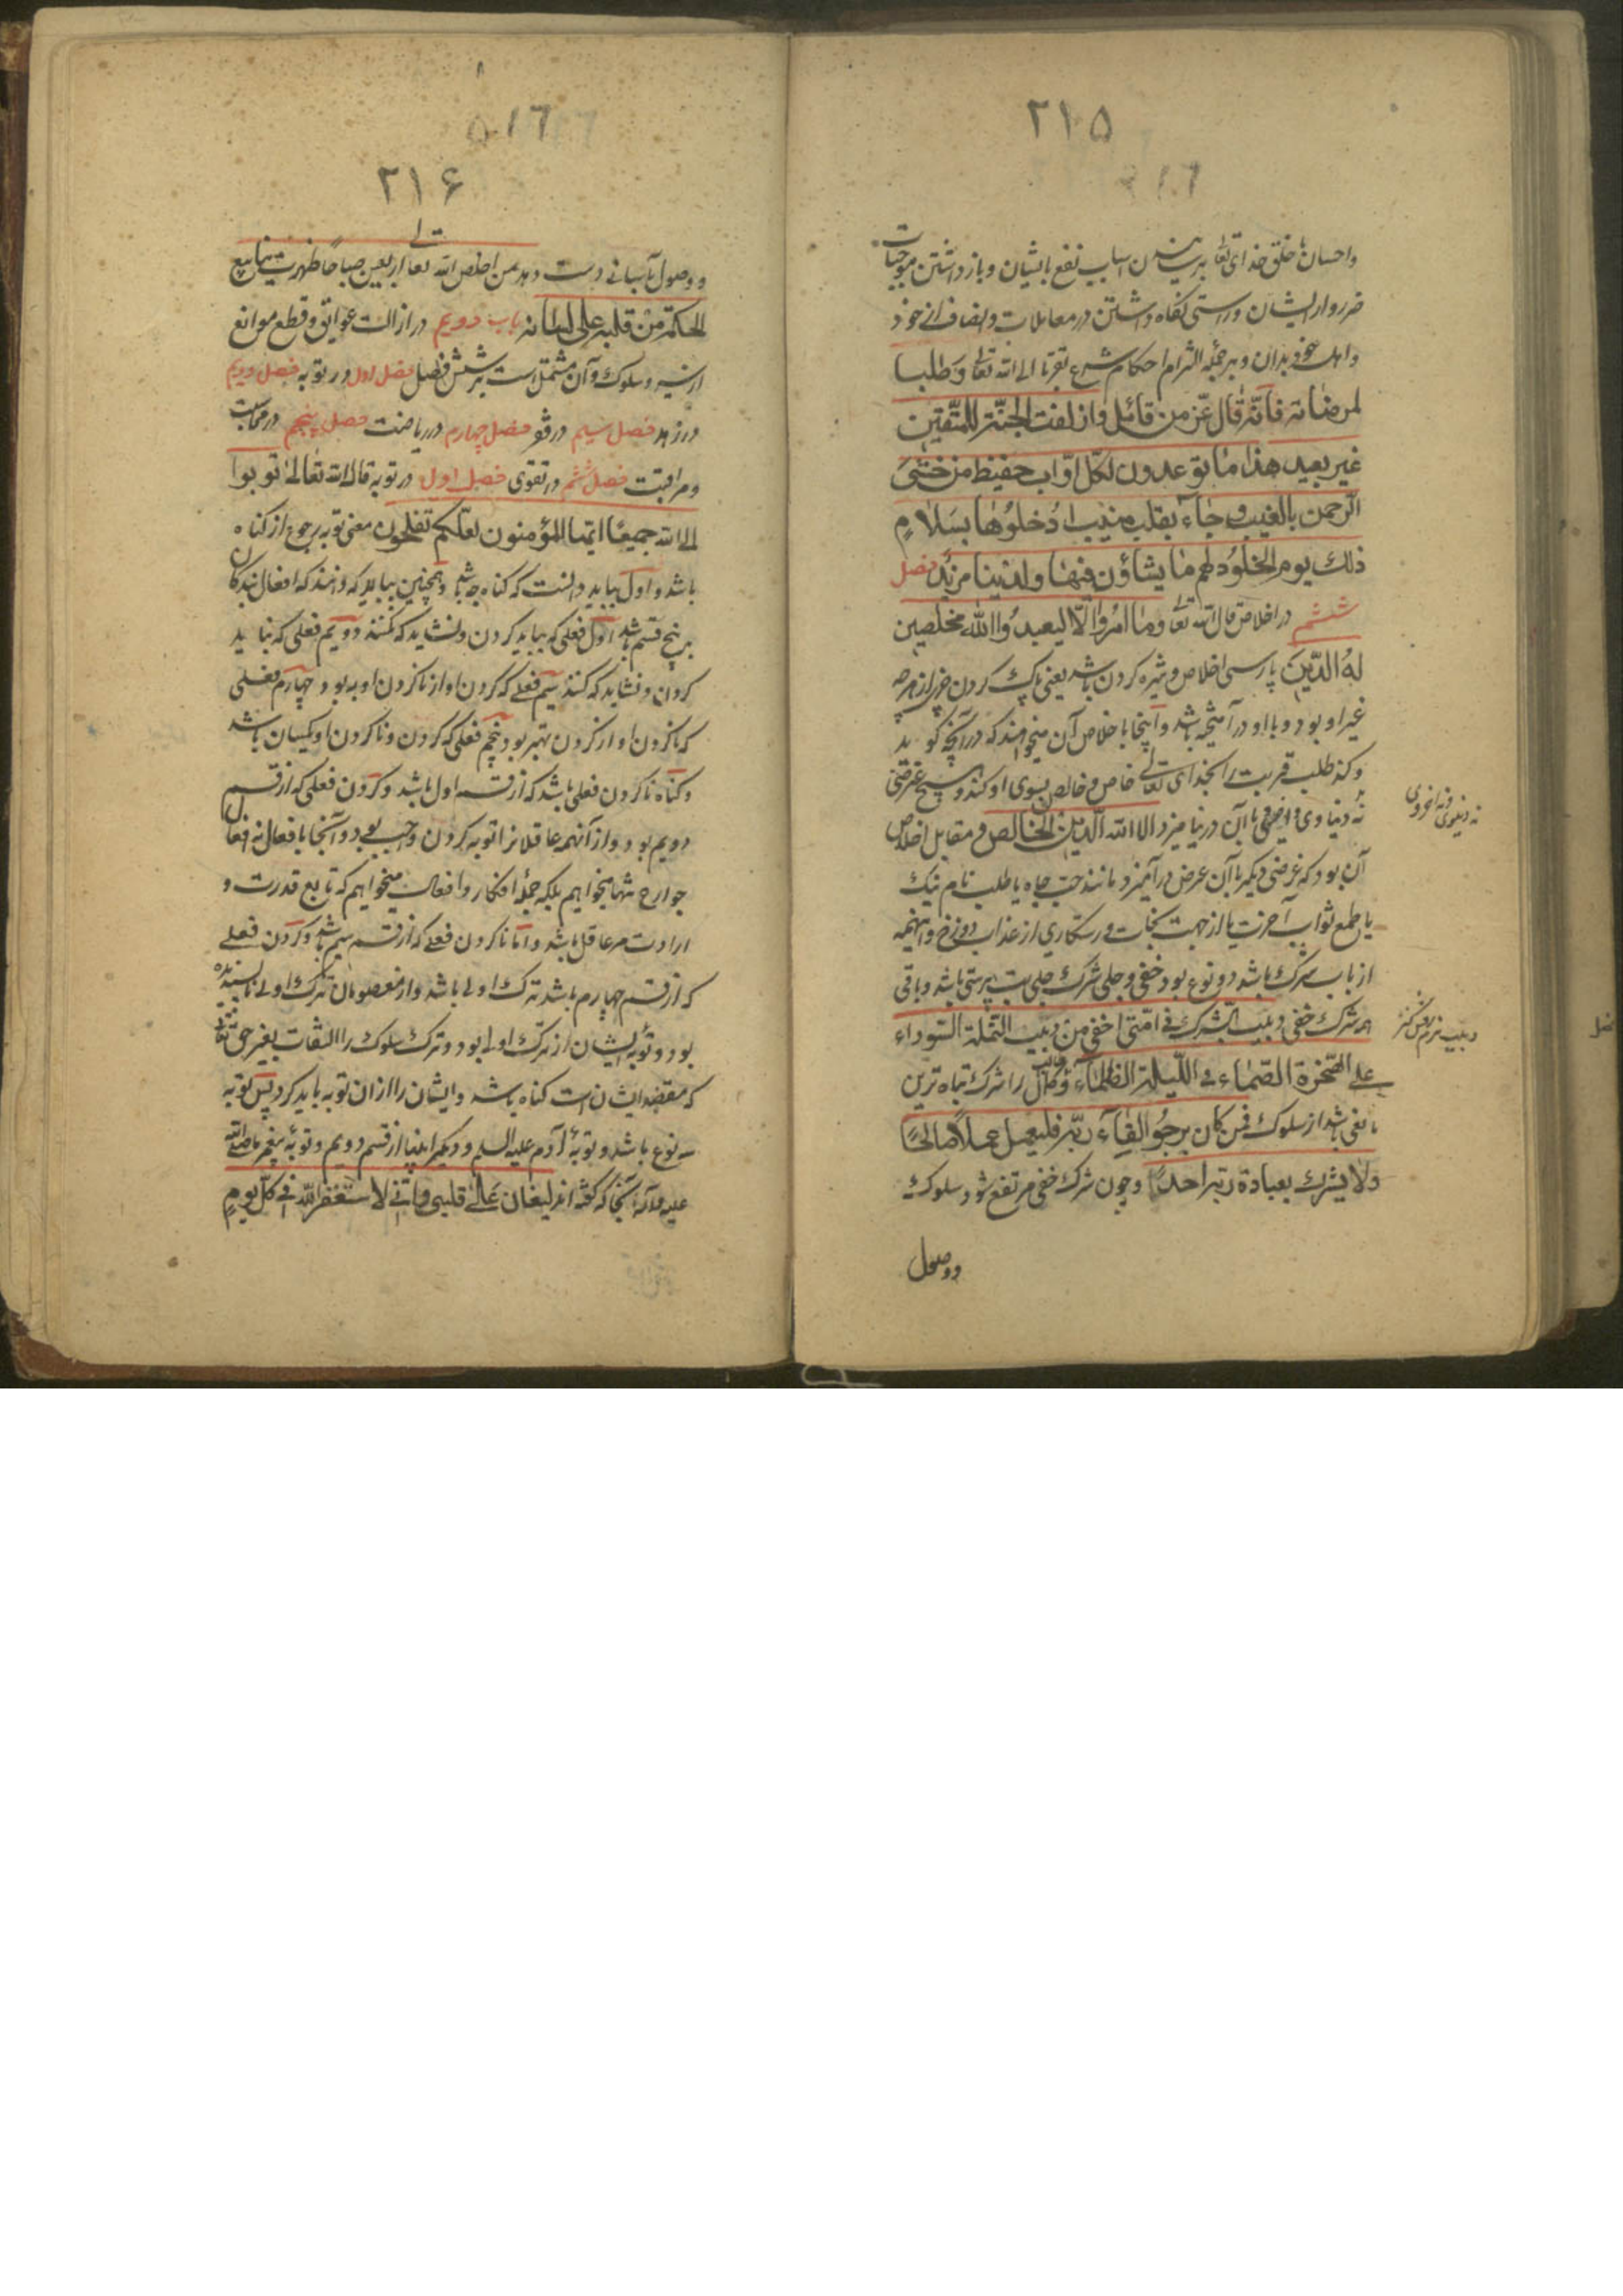 ۲۱۵
واحسان با خلق خدای تعالی برسانیدن اسباب نفع بایشان و بازداشتن موجبات
ضرر از ایشان و راستی نگاه داشتن در معاملات و انصاف از خود
دادن و برجمله التزام احکام شرع تقربا الی الله تعالی وطلبا
لمرضاته فانّه قال عزّ من قائل وازلفت الجنّة للمتّقین
غیر بعید هذا ما توعدون لکل اوّاب حفیظ من خشی
الرحمن بالغیب و جاء بقلب منیب ادخلوها بسلامٍ
ذلك یوم الخلود لهم ما یشاؤن فیها ولدینا مزید فصل
ششم در اخلاص قال الله تعالی وما امروا الّا لیعبدوا الله مخلصین
له الدّین پارسی اخلاص ویژه کردن باشد یعنی پاک کردن چیز از هرچه
غیر او بود و با او درآمیخته باشد و اینجا باخلاص آن میخواهند که هر آنچه گوید
و کند طلب قربت بخدای تعالی خاص و خالص بسوی او کند و هیچ غرضی
نه دنیاوی و اخروی با آن درنیامیزد الا لله الدّین الخالص و مقابل اخلاص
آن بود که غرضی دیگر با آن غرض درآمیزد مانند حبّ جاه یا طلب نام نیک
یا طمع ثواب آخرت یا از جهت نجات و رستکاری از عذاب دوزخ و اینهمه
از باب شرک باشد دو نوع بود خفی و جلی شرک جلی بت پرستی باشد و باقی
همه شرک خفی دبیب الشرك فی امتی اخفی من دبیب النملة السوداء
علی الصّخرة الصّماء فی اللّیلة الظلماء و طالب کمال را شرک تباه ترین
مانعی باشد از سلوک فمن کان یرجو لقاء ربّه فلیعمل عملاً صالحاً
ولا یشرك بعبادة ربّه احداً و چون شرک خفی مرتفع شود سلوک
ووصول
نه دنیوی و نه اخروی
۲۱۶
ووصول بآسانی دست دهد من اخلص لله تعالی اربعین صباحا ظهرت ینابیع
الحکمة من قلبه علی لسانه باب دویم در ازالت عوائق و قطع موانع
از سیر و سلوک و آن مشتمل است بر شش فصل فصل اول در توبه فصل دویم
در زهد فصل سیم در فقر فصل چهارم در ریاضت فصل پنجم در محاسبت
و مراقبت فصل ششم در تقوی فصل اول در توبه قال الله تعالی توبوا
الی الله جمیعًا ایّها المؤمنون لعلّکم تفلحون معنی توبه رجوع از گناه
باشد و اول بباید دانست که گناه چه باشد و همچنین بباید که دانند که افعال بندگان
بر پنج قسم باشد اول فعلی که بباید کردن و نشاید که نکنند دویم فعلی که نباید
کردن و نشاید که کنند سیم فعلی که کردن او از ناکردن او به بود چهارم فعلی
که ناکردن او از کردن بهتر بود پنجم فعلی که کردن و ناکردن او یکسان باشد
و گناه ناکردن فعلی باشد که از قسم اول باشد و کردن فعلی که از قسم
دویم بود و از آنهمه عاقلانرا توبه کردن واجب بود و آنجا بافعال نه افعال
جوارح تنها میخواهیم بلکه جملۀ افکار و افعالی میخواهیم که تابع قدرت و
ارادت هر عاقل باشد و اما ناکردن فعلی که از قسم سیم باشد و کردن فعلی
که از قسم چهارم باشد ترک اولی باشد و از معصومان ترک اولی ناپسندیده
بود و توبۀ ایشان از ترک اولی بود و ترک سلوک را التفات بغیر حق تعالی
که مقصد ایشان است گناه باشد و ایشان را از ان توبه باید کرد پس توبه
سه نوع باشد و توبۀ آدم علیه السلم و دیگر انبیا از قسم دویم و توبۀ پیغمبر ما صلی الله
علیه وآله آنجا که گفته انه لیغان علی قلبی وانّی لاستغفر الله فی کلّ یومٍ